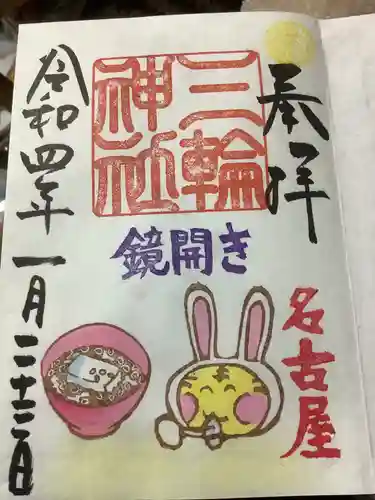 奉拝
三輪
神社
鏡開き
名古屋
令和四年一月二十二日